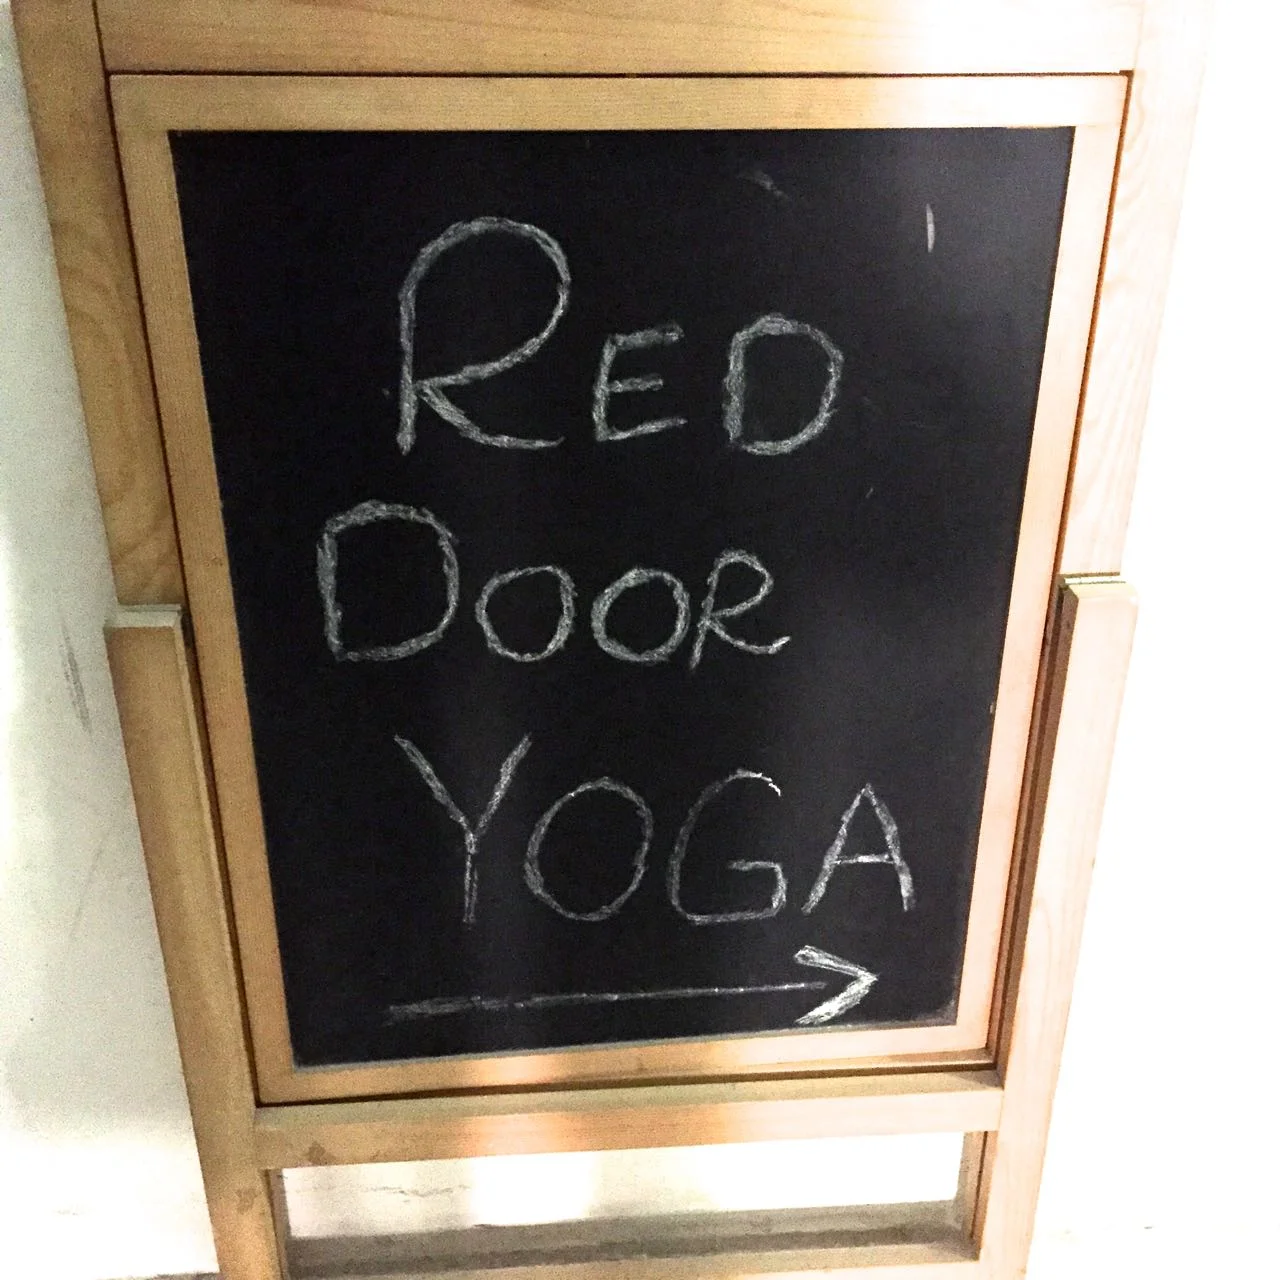 RED
DOOR
YOGA
→